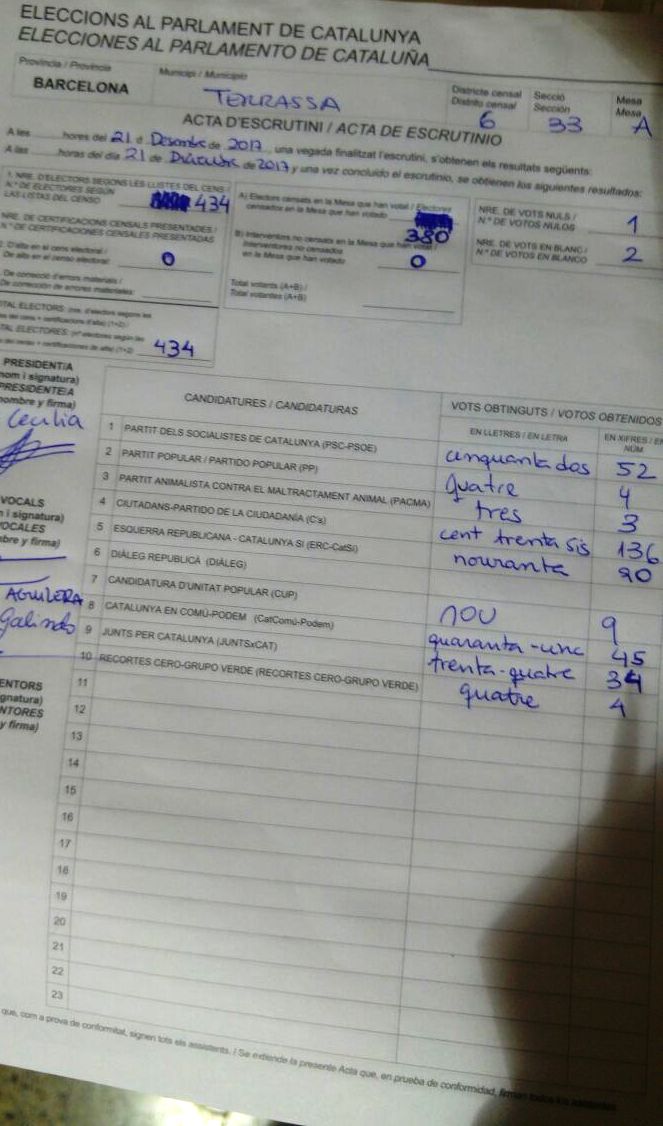 ELECCIONS AL PARLAMENT DE CATALUNYA
ELECCIONES AL PARLAMENTO DE CATALUÑA
Província / Provincia
Municipi / Municipio
Districte censal
Distrito censal
Secció
Sección
Mesa
Mesa
BARCELONA
TERRASSA
6
33
A
ACTA D'ESCRUTINI / ACTA DE ESCRUTINIO
A les hores del 21 d Desembre de 2017, una vegada finalitzat l'escrutini, s'obtenen els resultats següents:
A las horas del día 21 de Diciembre de 2017 y una vez concluido el escrutinio, se obtienen los siguientes resultados:
1. NRE. D'ELECTORS SEGONS LES LLISTES DEL CENS /
N.º DE ELECTORES SEGÚN
LAS LISTAS DEL CENSO
434
NRE. DE CERTIFICACIONS CENSALS PRESENTADES /
N.º DE CERTIFICACIONES CENSALES PRESENTADAS
2. D'alta en el cens electoral /
De alta en el censo electoral:
0
De correcció d'errors materials /
De corrección de errores materiales:
434
A) Electors censats en la Mesa que han votat / Electores
censados en la Mesa que han votado
380
B) Interventors no censats en la Mesa que han votat /
Interventores no censados
en la Mesa que han votado
0
Total votants (A+B) /
Total votantes (A+B)
NRE. DE VOTS NULS /
N.º DE VOTOS NULOS
1
NRE. DE VOTS EN BLANC /
N.º DE VOTOS EN BLANCO
2
PRESIDENT/A
nom i signatura)
PRESIDENTE/A
nombre y firma)
Cecilia
VOCALS
i signatura)
VOCALES
bre y firma)
AGUILERA
Galindo
ENTORS
gnatura)
NTORES
y firma)
CANDIDATURES / CANDIDATURAS
VOTS OBTINGUTS / VOTOS OBTENIDOS
EN LLETRES / EN LETRA
EN XIFRES / EN
NÚM
1 PARTIT DELS SOCIALISTES DE CATALUNYA (PSC-PSOE) cinquanta dos 52
2 PARTIT POPULAR / PARTIDO POPULAR (PP) quatre 4
3 PARTIT ANIMALISTA CONTRA EL MALTRACTAMENT ANIMAL (PACMA) tres 3
4 CIUTADANS-PARTIDO DE LA CIUDADANÍA (C's) cent trenta sis 136
5 ESQUERRA REPUBLICANA - CATALUNYA SI (ERC-CatSí) nouranta 90
6 DIÀLEG REPUBLICÀ (DIÀLEG)
7 CANDIDATURA D'UNITAT POPULAR (CUP) nou 9
8 CATALUNYA EN COMÚ-PODEM (CatComú-Podem) quaranta-cinc 45
9 JUNTS PER CATALUNYA (JUNTSxCAT) trenta-quatre 34
10 RECORTES CERO-GRUPO VERDE (RECORTES CERO-GRUPO VERDE) quatre 4
11
12
13
14
15
16
17
18
19
20
21
22
23
que, com a prova de conformitat, signen tots els assistents. / Se extiende la presente Acta que, en prueba de conformidad, firman todos los asistentes.